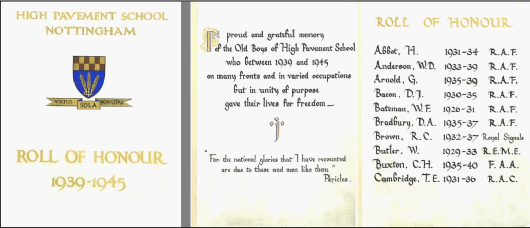 HIGH PAVEMENT SCHOOL
NOTTINGHAM
VIRTUS SOLA NOBILITAS
ROLL OF HONOUR
1939-1945
In proud and grateful memory
of the Old Boys of High Pavement School
who between 1939 and 1945
on many fronts and in varied occupations
but in unity of purpose
gave their lives for freedom —
"For the national glories that I have recounted
are due to these and men like them"
Pericles.
ROLL OF HONOUR
Abbot, H. 1931-34 R.A.F.
Anderson, W.D. 1933-39 R.A.F.
Arnold, G. 1935-39 R.A.F.
Bacon, D.J. 1930-35 R.A.F.
Bateman, W.F. 1926-31 R.A.F.
Bradbury, D.A. 1935-37 R.A.F.
Brown, R.C. 1932-37 Royal Signals
Butler, W. 1929-33 R.E.M.E.
Buxton, C.H. 1935-40 F.A.A.
Cambridge, T.E. 1931-36 R.A.C.